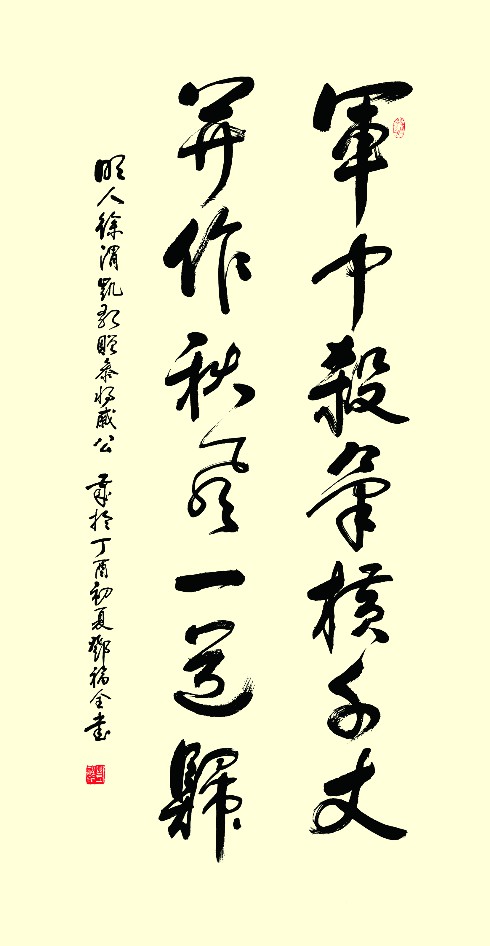 軍中殺氣橫千丈
并作秋風一道歸
明人徐渭凱歌贈參將戚公 歲於丁酉初夏鄧福全書